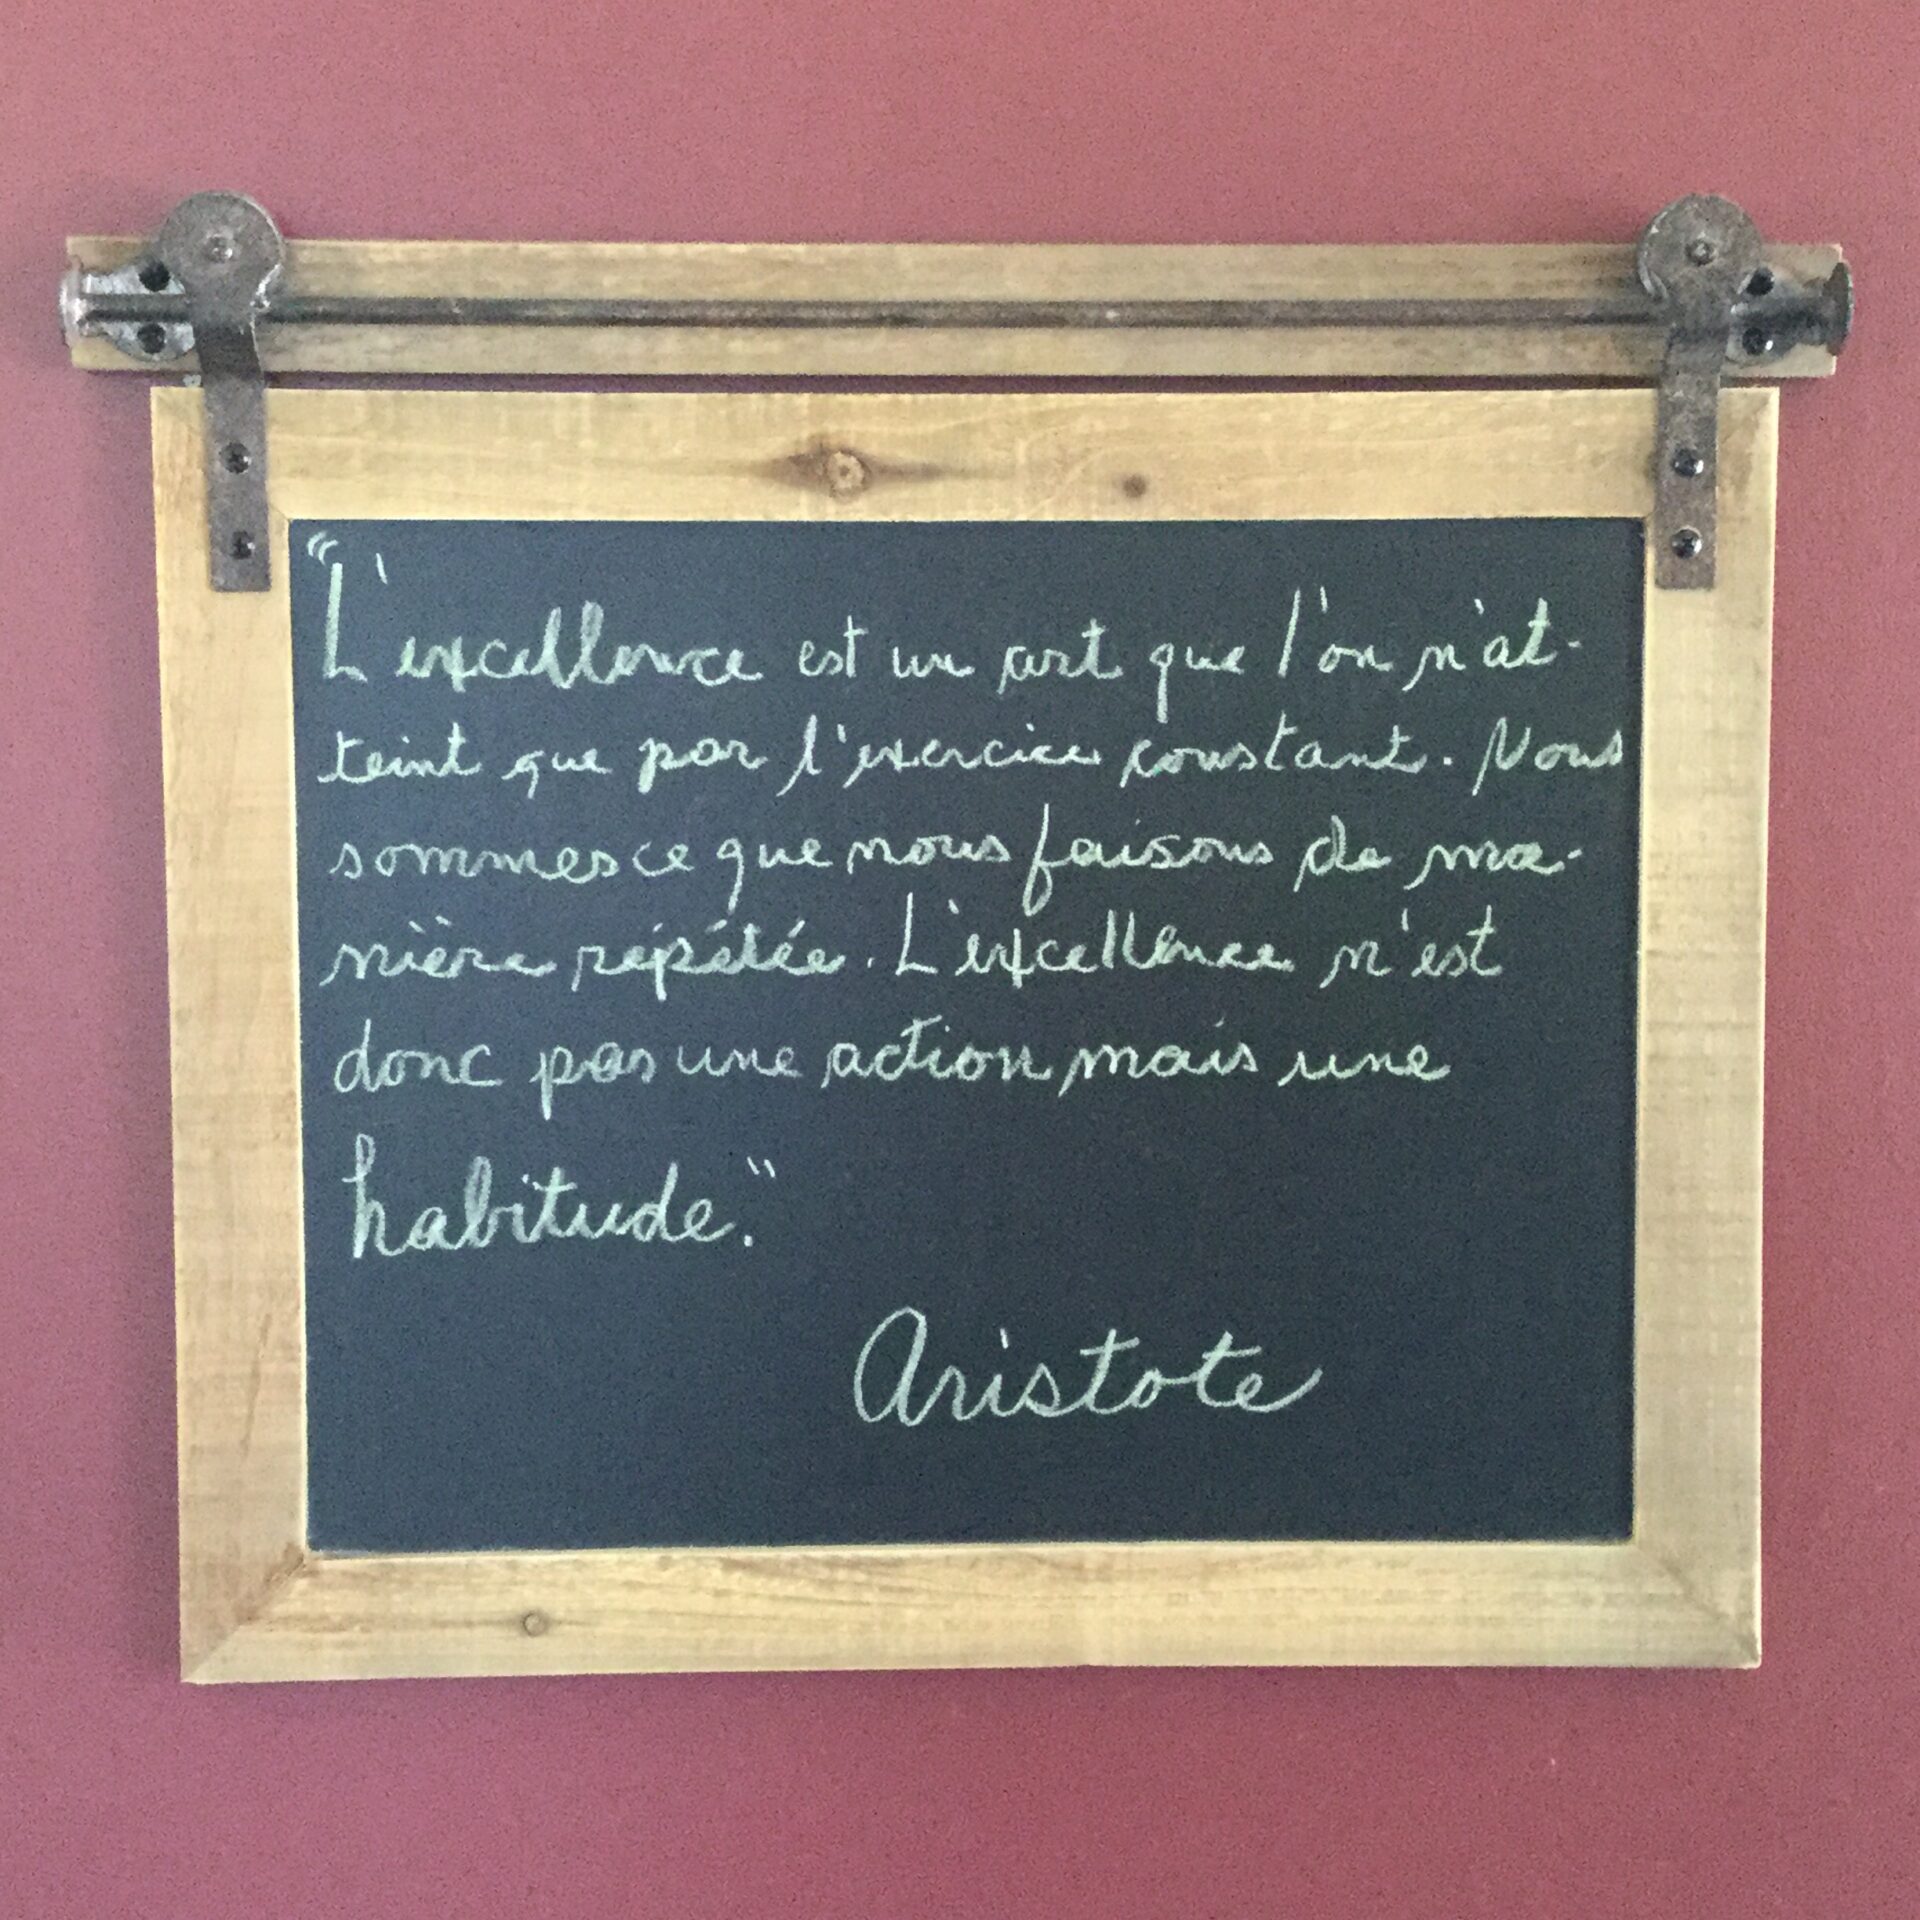 "L'excellence est un art que l'on n'at-
teint que par l'exercice constant. Nous
sommes ce que nous faisons de ma-
nière répétée. L'excellence n'est
donc pas une action mais une
habitude."
Aristote